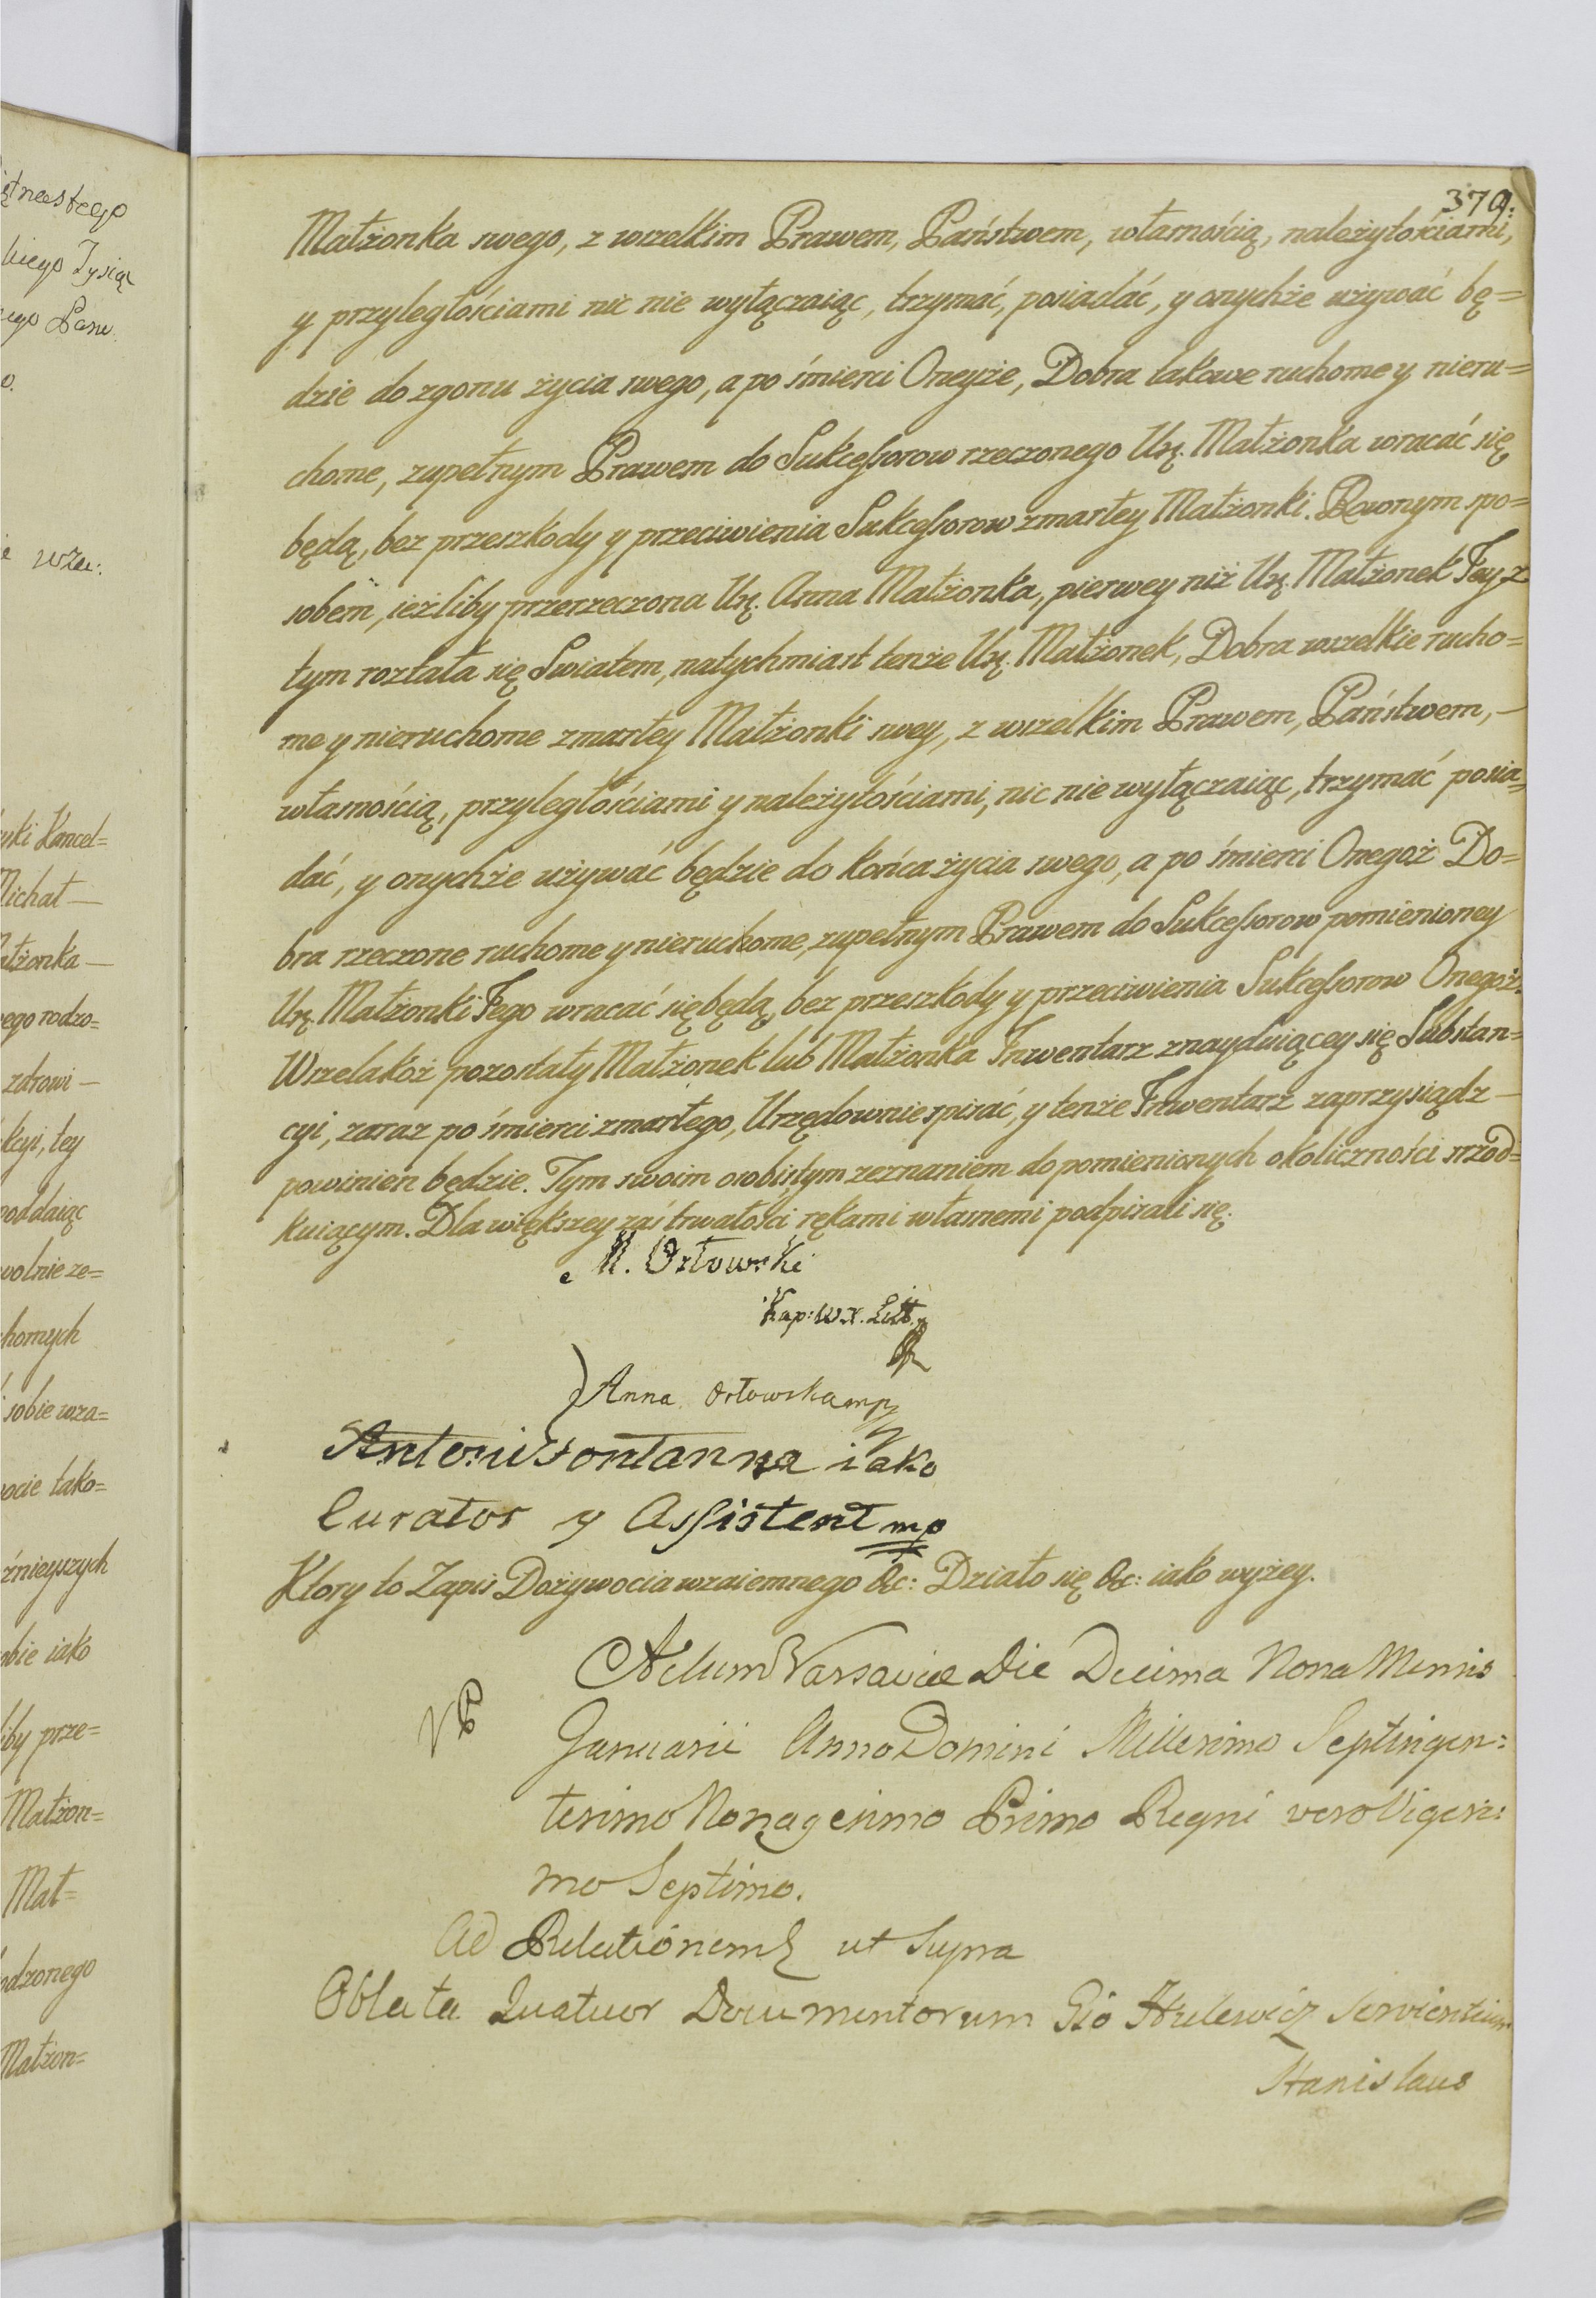 379:
Małżonka swego, z wszelkim Prawem, Państwem, własnością, należytościami,
y przyległościami nic nie wyłączaiąc, trzymać, posiadać, y onychże używać bę=
dzie do zgonu życia swego, a po śmierci Oneyże, Dobra takowe ruchome y nieru=
chome, zupełnym Prawem do Sukcessorow rzeczonego Urż. Małżonka wracać się
będą, bez przeszkody y przeciwienia Sukcessorow zmarłey Małżonki. Rownym spo=
sobem, ieżliby przerzeczona Urż. Anna Małżonka, pierwey niż Urż. Małżonek Jey z
tym rostała się Swiatem, natychmiast tenże Urż. Małżonek, Dobra wszelkie rucho=
me y nieruchome zmarłey Małżonki swey, z wszelkim Prawem, Państwem, —
własnością, przyległościami y należytościami, nic nie wyłączaiąc, trzymać posia=
dać, y onychże używać będzie do końca życia swego, a po śmierci Onegoż Do=
bra rzeczone ruchome y nieruchome, zupełnym Prawem do Sukcessorow pomienioney
Urż. Małżonki Jego wracać się będą, bez przeszkody y przeciwienia Sukcessorow Onegoż.
Wszelakoż pozostały Małżonek lub Małżonka Inwentarz znayduiącey się Substan=
cyi, zaraz po śmierci zmarłego, Urzędownie spisać, y tenże Inwentarz zaprzysiądz —
powinien będzie. Tym swoim osobistym zeznaniem do pomienionych okoliczności srzod=
kuiącym. Dla większey zaś trwałości rękami własnemi podpisali się.
M. Orłowski
Kap: W.X. Litt.
Anna Orłowska mp
Antoni Fontanna iako
Curator y Assistent mp
Ktory to Zapis Dożywocia wzaiemnego &c: Działo się &c: iako wyżey.
Actum Varsaviae Die Decima Nona Mensis
Januarii Anno Domini Millesimo Septingen:
tesimo Nonagesimo Primo Regni vero Vigesi:
mo Septimo.
Ad Relationem ut Supra
Oblata Quatuor Documentorum Gło Hulewicz Servientium
Stanislaus